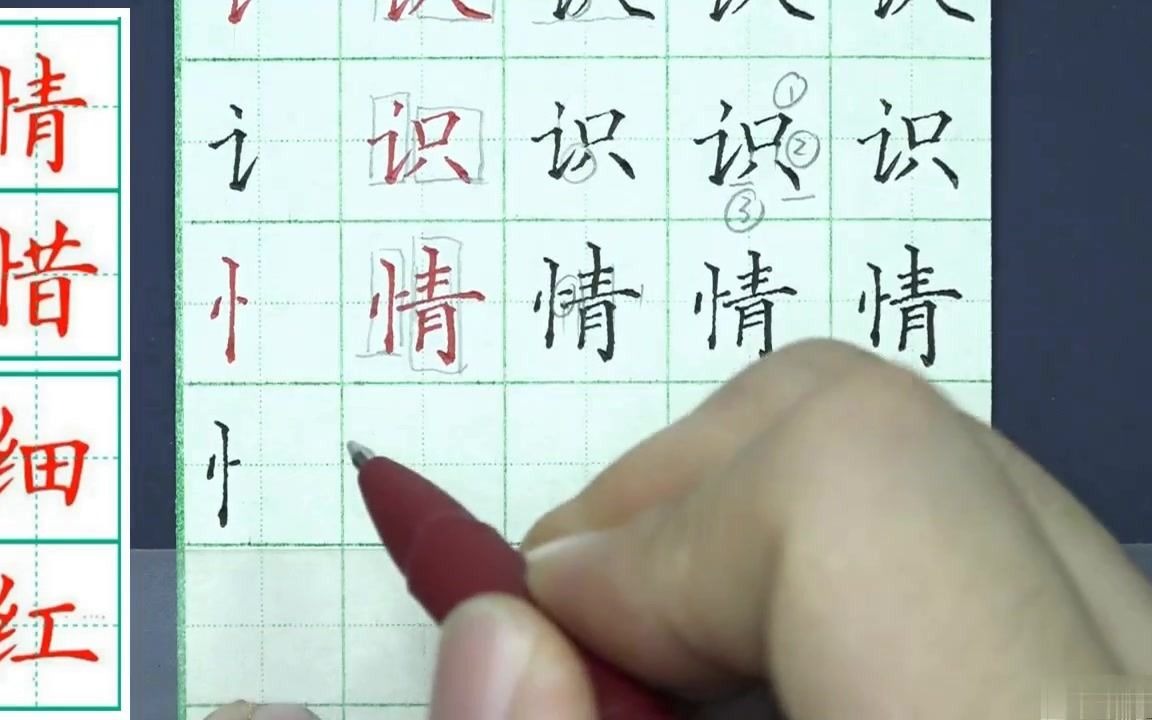 情
惜
细
红
讠 识 识 识 识
① ② ③
忄 情 情 情 情
忄